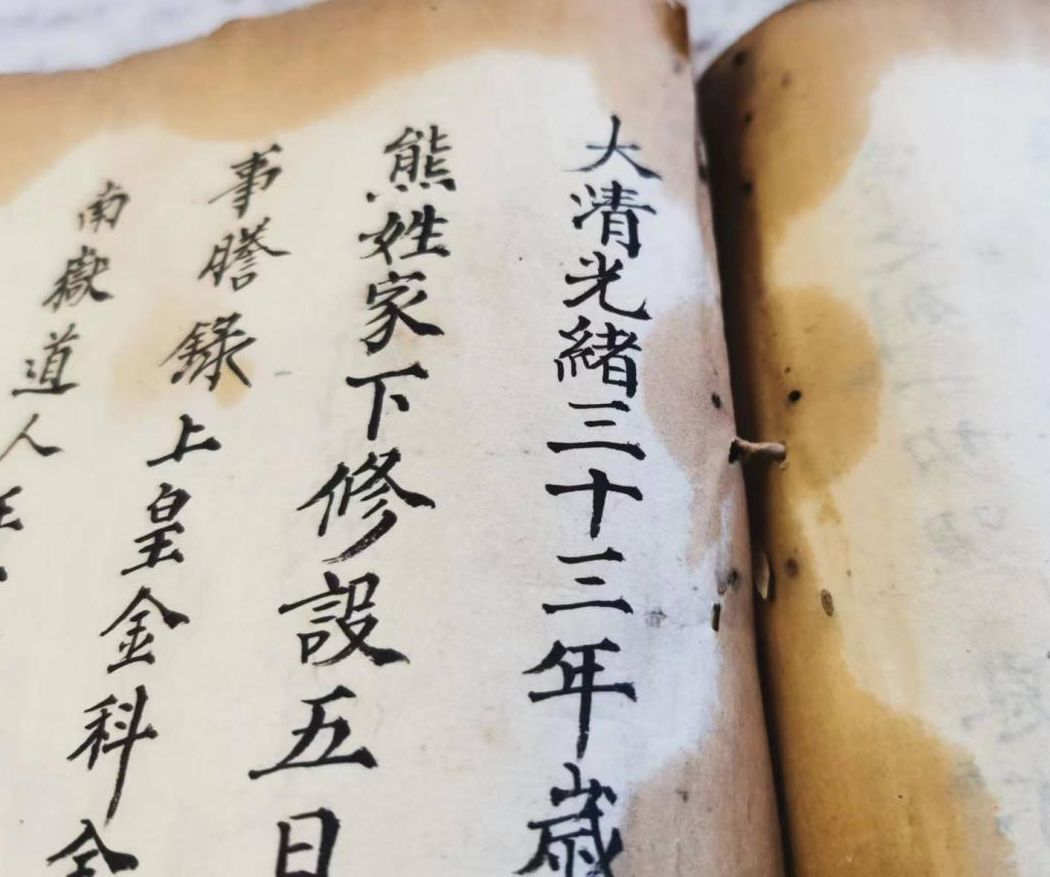 大清光緒三十三年歲
熊姓家下修設五日
事謄錄上皇金科全
南嶽道人